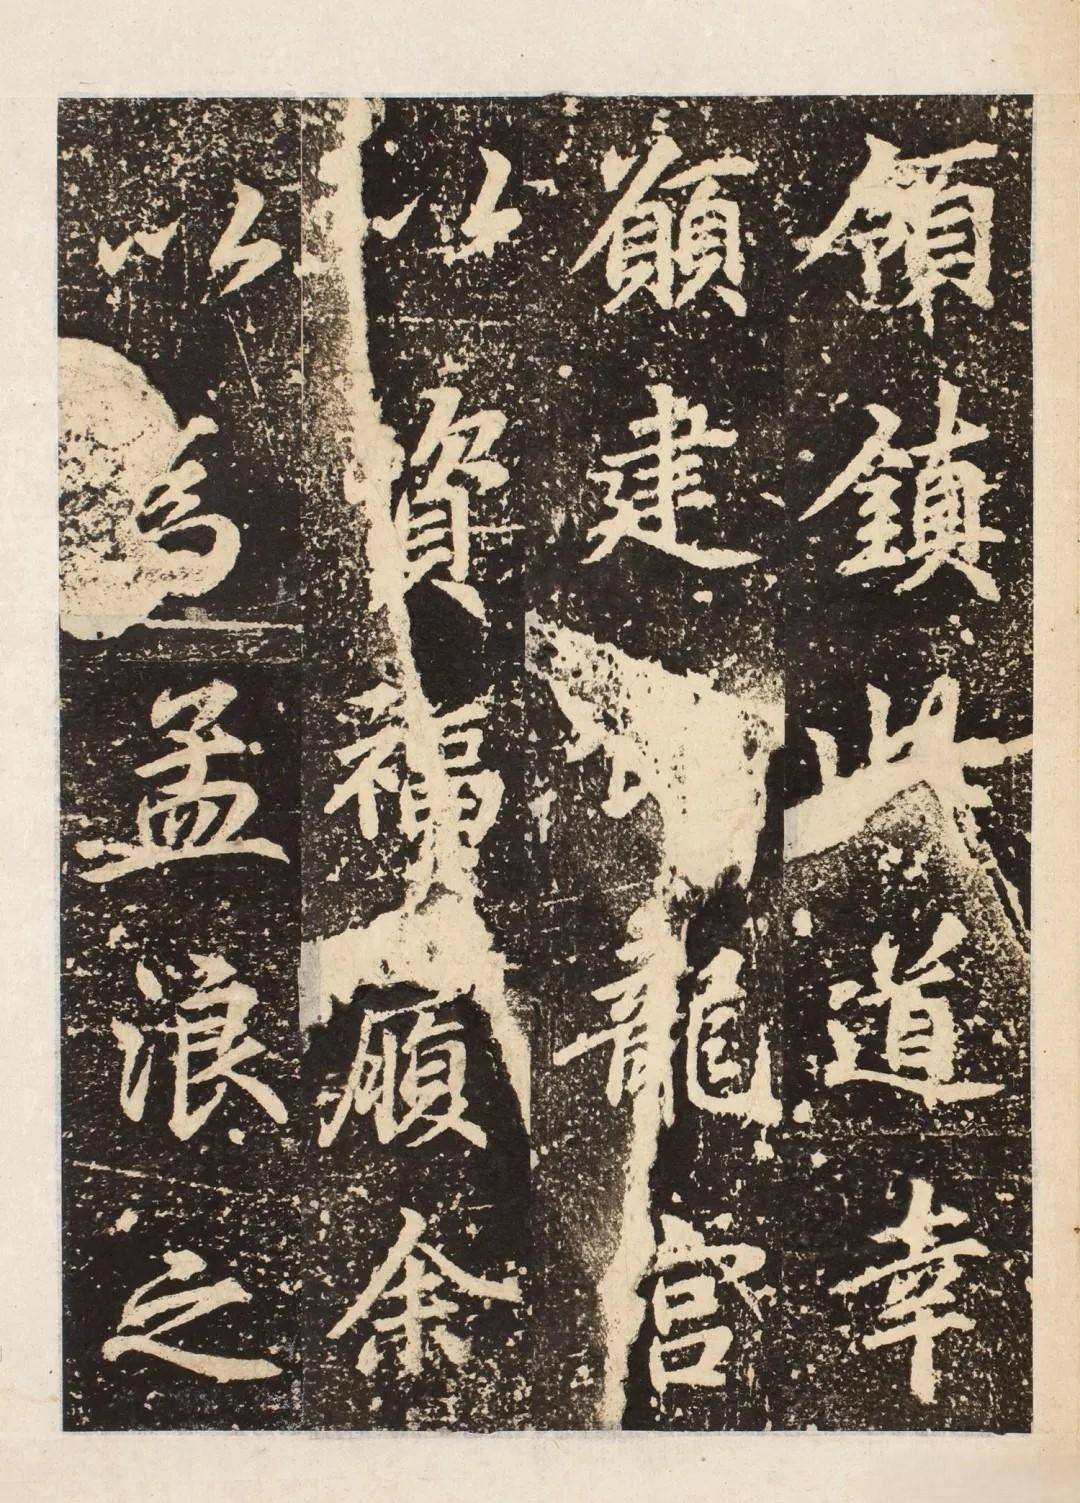 領鎮此道幸
願建龍宮
以資福顧余
以為孟浪之